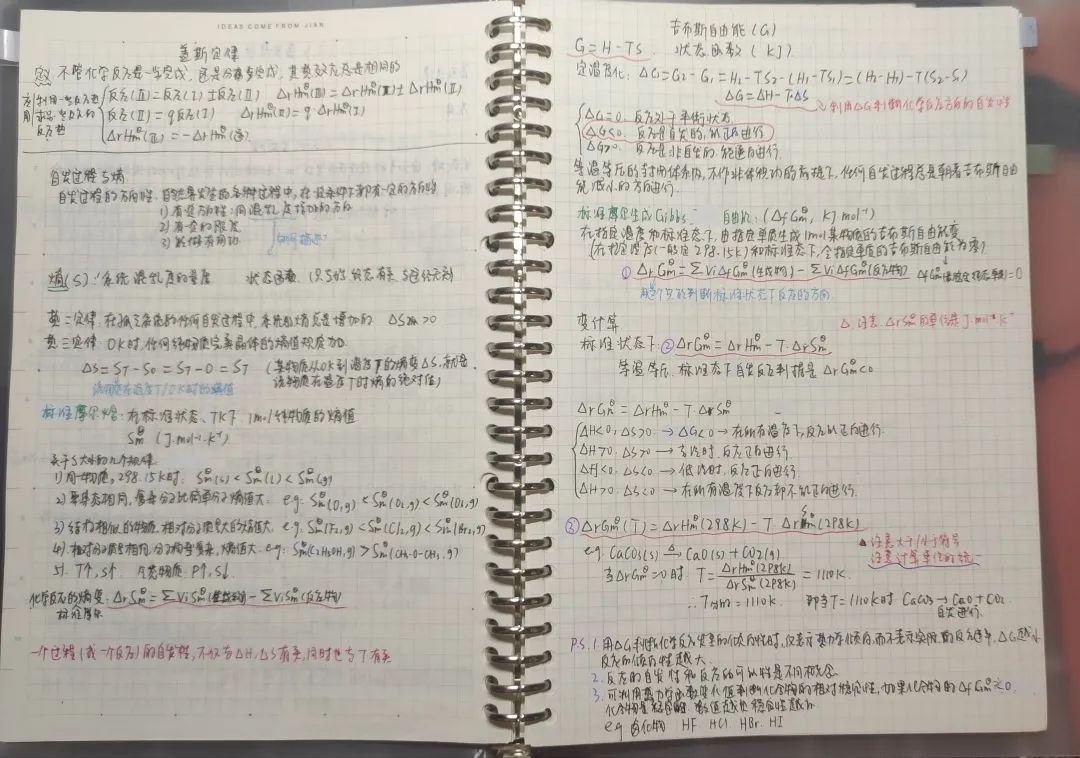 IDEAS COME FROM JIAN
盖斯定律
不管化学反应是一步完成，还是分几步完成，其热效应总是相同的
反应(Ⅲ)=反应(Ⅰ)±反应(Ⅱ) ΔrHm(Ⅲ)=ΔrHm(Ⅰ)±ΔrHm(Ⅱ)
反应(Ⅱ)=q反应(Ⅰ) ΔrHm(Ⅱ)=q·ΔrHm(Ⅰ)
自发过程与熵
自发过程的方向性：自然界发生的各种过程中，在一定条件下都有一定的方向性
1) 有一定方向性：向混乱度增加的方向
2) 有一定的限度
3) 能做有用功
熵(S)：系统混乱度的量度 状态函数
第二定律：在孤立系统的任何自发过程中，系统的熵总是增加的 ΔS孤>0
第三定律：0K时，任何纯物质完美晶体的熵值规定为0.
ΔS=ST-S0=ST-0=ST (某物质从0K到温度T的熵变ΔS，就是
该物质在温度T时熵的绝对值)
标准摩尔熵：在标准状态、TK下 1mol纯物质的熵值
Smᶱ (J·mol⁻¹·K⁻¹)
关于S大小的几个规律
1) 同一物质，298.15K时 Smᶱ(s)<Smᶱ(l)<Smᶱ(g)
2) 聚集态相同，复杂分子比简单分子熵值大. eg: Smᶱ(O,g)<Smᶱ(O₂,g)<Smᶱ(O₃,g)
3) 结构相似的物质，相对分子质量大的熵值大. e.g. Smᶱ(F₂,g)<Smᶱ(Cl₂,g)<Smᶱ(Br₂,g)
4) 相对分子质量相同，分子构型复杂，熵值大. eg: Smᶱ(C₂H₅OH,g)>Smᶱ(CH₃-O-CH₃,g)
5) T↑,S↑. 气态物质: P↑,S↓.
化学反应的熵变: ΔrSmᶱ=ΣViSmᶱ(生成物)-ΣViSmᶱ(反应物)
一个过程(或一个反应)的自发性，不仅与ΔH,ΔS有关，同时也与T有关
吉布斯自由能(G)
G=H-TS. 状态函数 (KJ)
定温变化: ΔG=G2-G1=H2-TS2-(H1-TS1)=(H2-H1)-T(S2-S1)
ΔG=ΔH-T·ΔS
利用ΔG判断化学反应方向的自发性
ΔG=0. 反应处于平衡状态
ΔG<0. 反应是自发的，能正向进行
ΔG>0. 反应是非自发的. 能逆向进行.
等温等压的封闭体系内，不作非体积功的前提下，任何自发过程总是朝着吉布斯自由
能减小的方向进行.
标准摩尔生成Gibbs 自由能: (ΔfGmᶱ, KJ mol⁻¹)
在指定温度和标准态下，由指定单质生成1mol某物质的吉布斯自由能变
(在指定温度(一般在298.15K)和标准态下，令指定单质的吉布斯自由能为零)
① ΔrGmᶱ=ΣViΔfGmᶱ(生成物)-ΣViΔfGmᶱ(反应物)
△ 注意: ΔrSmᶱ的单位是J·mol⁻¹K⁻¹
标准状态下: ② ΔrGmᶱ=ΔrHmᶱ-T·ΔrSmᶱ
等温等压. 标准态下自发反应判据是ΔrGmᶱ<0
ΔrGmᶱ=ΔrHmᶱ-T·ΔrSmᶱ
ΔH<0, ΔS>0 → ΔG<0 → 在所有温度下，反应能正向进行.
ΔH>0. ΔS>0 → 高温时，反应正向进行.
ΔH<0. ΔS<0 → 低温时，反应正向进行.
ΔH>0. ΔS<0 → 在所有温度下反应都不能正向进行.
③ ΔrGmᶱ(T)=ΔrHmᶱ(298K)-T·ΔrSmᶱ(298K)
▲ 注意大于/小于符号
注意计算单位的统一
eg. CaCO₃(s) ≜ CaO(s)+CO₂(g)
当ΔrGmᶱ=0时. T=ΔrHmᶱ(298K)/ΔrSmᶱ(298K)=1110K.
∴ T分解=1110K. 即当T=1110K时 CaCO₃→CaO+CO₂
自发进行.
P.S. 1. 用ΔG判断化学反应发生的倾向性时，仅表示热力学倾向，而不表示实际的反应速率，ΔG越小
反应的倾向性越大.
2. 反应的自发性和反应的可逆性是不同概念
3. 可利用热力学函数变化值判断化合物的相对稳定性，如果化合物的ΔfGmᶱ<0.
e.g. 卤化物 HF HCl HBr HI